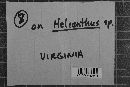 8 on Helianthus sp.
VIRGINIA